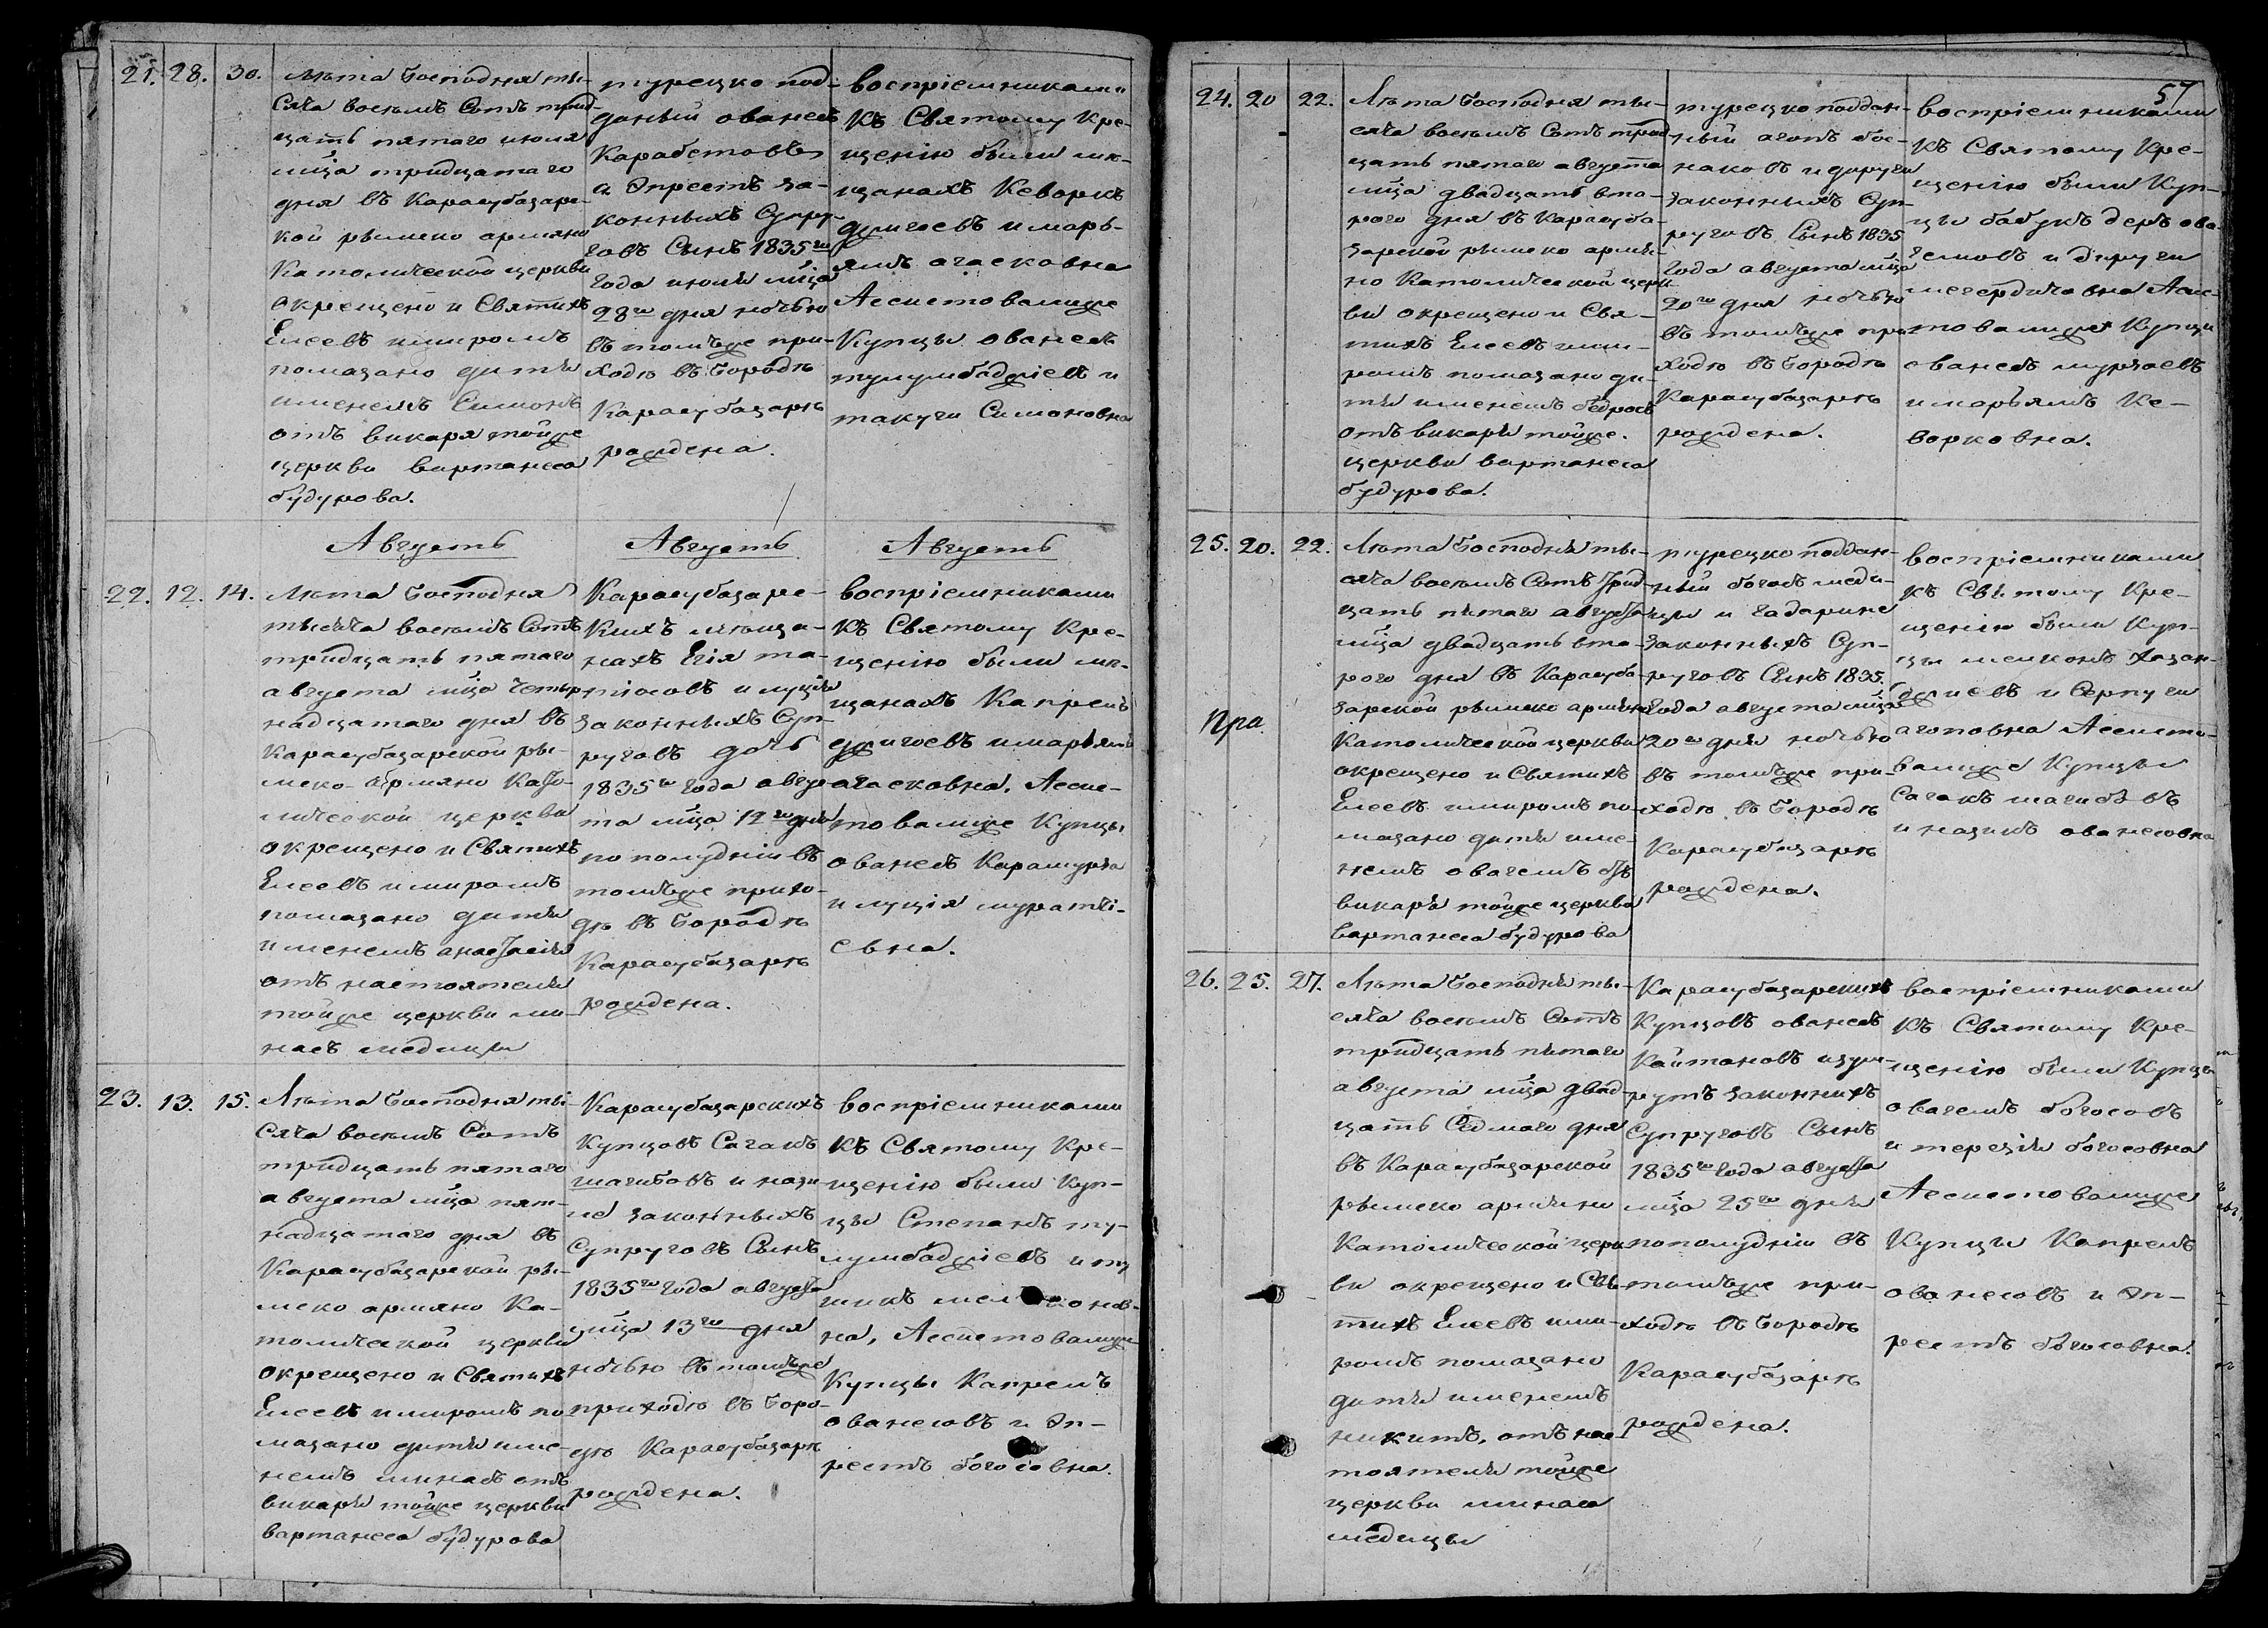 57
21. 28. 30.
Лѣта Господня ты-
сяча восемъ Сотъ трид-
цать пятаго июля
мца тридцатаго
дня въ Карасубазарс-
кой римско армяно
Католической церкви
окрещено и Святихъ
Елеевъ имиромъ
помазано дитя
именемъ Симонъ
отъ викаря тойже
церкви вартанеса
будурова.
турецко под-
даный ованесъ
Карабетовъ
а Эпресть за-
конныхъ Супру-
говъ Сынъ 1835го
Года июля мца
28го дня ночью
въ томъже при-
ходѣ въ Городѣ
Карасубазарѣ
рождена.
воспріемниками
Къ Святому Кре-
щенію были мѣ-
щанахъ Кеворкъ
и марь-
ямъ агасковна
Ассистовалиже
Купцы ованесъ
тулумбаджіевъ и
такуги Симоновна
Августъ
Августъ
Августъ
22. 12. 14.
Лѣта Господня
тысяча восемъ Сотъ
тридцать пятаго
августа мца четыр
надцатаго дня въ
Карасубазарской ри-
мско-армяно Като-
лической церкви
окрещено и Святихъ
Елеевъ имиромъ
помазано дитя
именемъ анастасія
отъ настоятеля
тойже церкви ми-
насъ медицы
Карасубазарс-
кихъ мѣща-
нахъ Егія та-
тіосовъ и луціи
законныхъ Суп-
руговъ дочь
1835го Года авгус-
та мца 12го дня
по полудніи въ
томъже прихо-
дѣ въ Городѣ
Карасубазарѣ
рождена.
воспріемниками
Къ Святому Кре-
щенію были мѣ-
щанахъ Капрелъ
и марьямъ
агасковна. Ассис-
товалиже Купцы
ованесъ Карамурза
и луція муратьі-
евна.
23. 13. 15.
Лѣта Господня ты-
сяча восемъ Сотъ
тридцать пятаго
августа мца пят-
надцатаго дня въ
Карасубазарской ри-
мско армяно Ка-
толической церкви
окрещено и Святихъ
Елеевъ имиромъ по-
мазано дитя име-
немъ минасъ отъ
викаря тойже церкви
вартанеса будурова
Карасубазарскихъ
Купцовъ Сагакъ
шагибовъ и нази-
ме законныхъ
Супруговъ Сынъ
1835го Года августа
мца 13го дня
ночью въ томъже
приходѣ въ Горо-
дѣ Карасубазарѣ
рождена.
воспріемниками
Къ Святому Кре-
щенію были Куп-
цы Степанъ ту-
лумбаджіевъ и ту
на, Ассистовалиже
Купцы Капрелъ
ованесовъ и Эп-
рестъ богосовна.
24. 20 22.
Лѣта Господня ты-
сяча восемъ Сотъ трид
цать пятаго августа
мца двадцать вто-
рого дня въ Карасуба-
зарской римско армя-
но Католической церк-
ви окрещено и Свя-
тихъ Елеевъ ими-
ромъ помазано ди-
тя именемъ бедросъ
отъ викаря тойже.
церкви вартанеса
будурова.
турецко поддан-
ный агопъ бос-
наковъ и дируги
законныхъ Суп-
руговъ Сынъ 1835
Года августа мца
20го дня ночью
въ томъже при-
ходѣ въ Городѣ
Карасубазарѣ
рождена.
воспріемниками
Къ Святому Кре-
щенію были Куп-
цы бабукъ деръ ова-
гемовъ и дируги
мегердичовна Асис-
товалиже Купцы
ованесъ мурзаевъ
и марьямъ Ке-
ворковна.
25. 20. 22.
Пра.
Лѣта Господня ты-
сяча восемъ Сотъ трид-
цать пятаго августа
мца двадцать вто-
рого дня въ Карасуба-
зарской римско армяно
Католической церкви
окрещено и Святихъ
Елеевъ имиромъ по-
мазано дитя име-
немъ овагемъ отъ
викаря тойже церкви
вартанеса будурова
турецко поддан-
ный богосъ меди-
цы и гадарине
законныхъ Суп-
руговъ Сынъ 1835.
Года августа мца
20го дня ночью
въ томъже при-
ходѣ въ Городѣ
Карасубазарѣ
рождена.
воспріемниками
Къ Святому Кре-
щенію были Куп-
цы мелконъ хазан-
джіевъ и Серпуги
агоповна Ассисто-
валиже Купцы
Сагакъ шагибовъ
и назимъ ованесовна
26. 25. 27.
Лѣта Господня ты-
сяча восемъ Сотъ
тридцать пятаго
августа мца двад-
цать Седмого дня
въ Карасубазарской
римско армяно
Католической церк-
ви окрещено и Свя-
тихъ Елеевъ ими-
ромъ помазано
дитя именемъ
никитъ, отъ нас-
тоятеля тойже
церкви минаса
медицы
Карасубазарскихъ
Купцовъ ованесъ
Кайтановъ изум-
рутъ законныхъ
Супруговъ Сынъ
1835го Года августа
мца 25го дня
пополудніи въ
томъже при-
ходѣ въ Городѣ
Карасубазарѣ
рождена.
воспріемниками
Къ Святому Кре-
щенію были Купцы
овагемъ богосовъ
и терезія богосовна
Ассистовалиже
Купцы Капрелъ
ованесовъ и Эп-
рестъ богосовна.